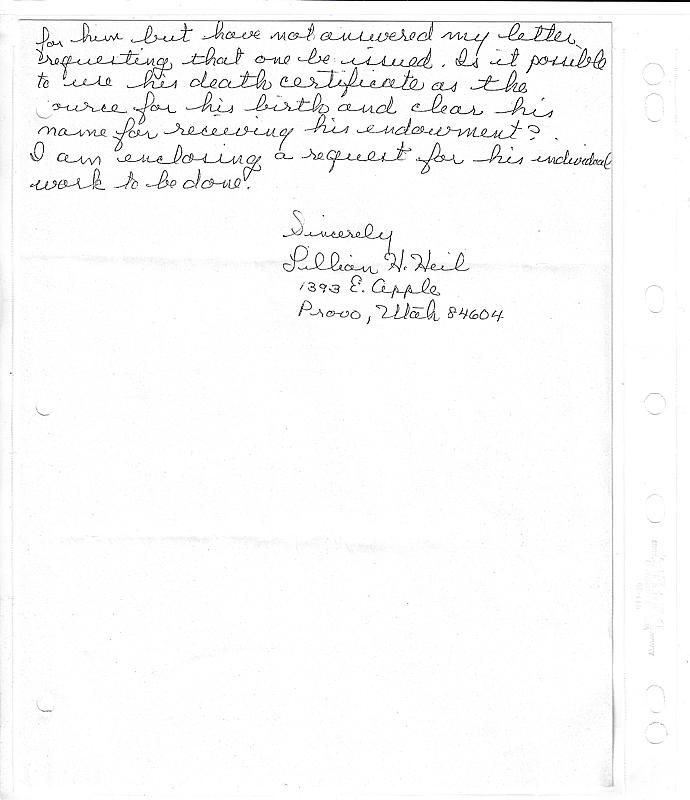 for him but have not answered my letter
requesting that one be issued. Is it possible
to use his death certificate as the
ource for his birth and clear his
name for receiving his endowment?
I am enclosing a request for his individual
work to be done.
Sincerely
Lillian H. Heil
1393 E. Apple
Provo, Utah 84604